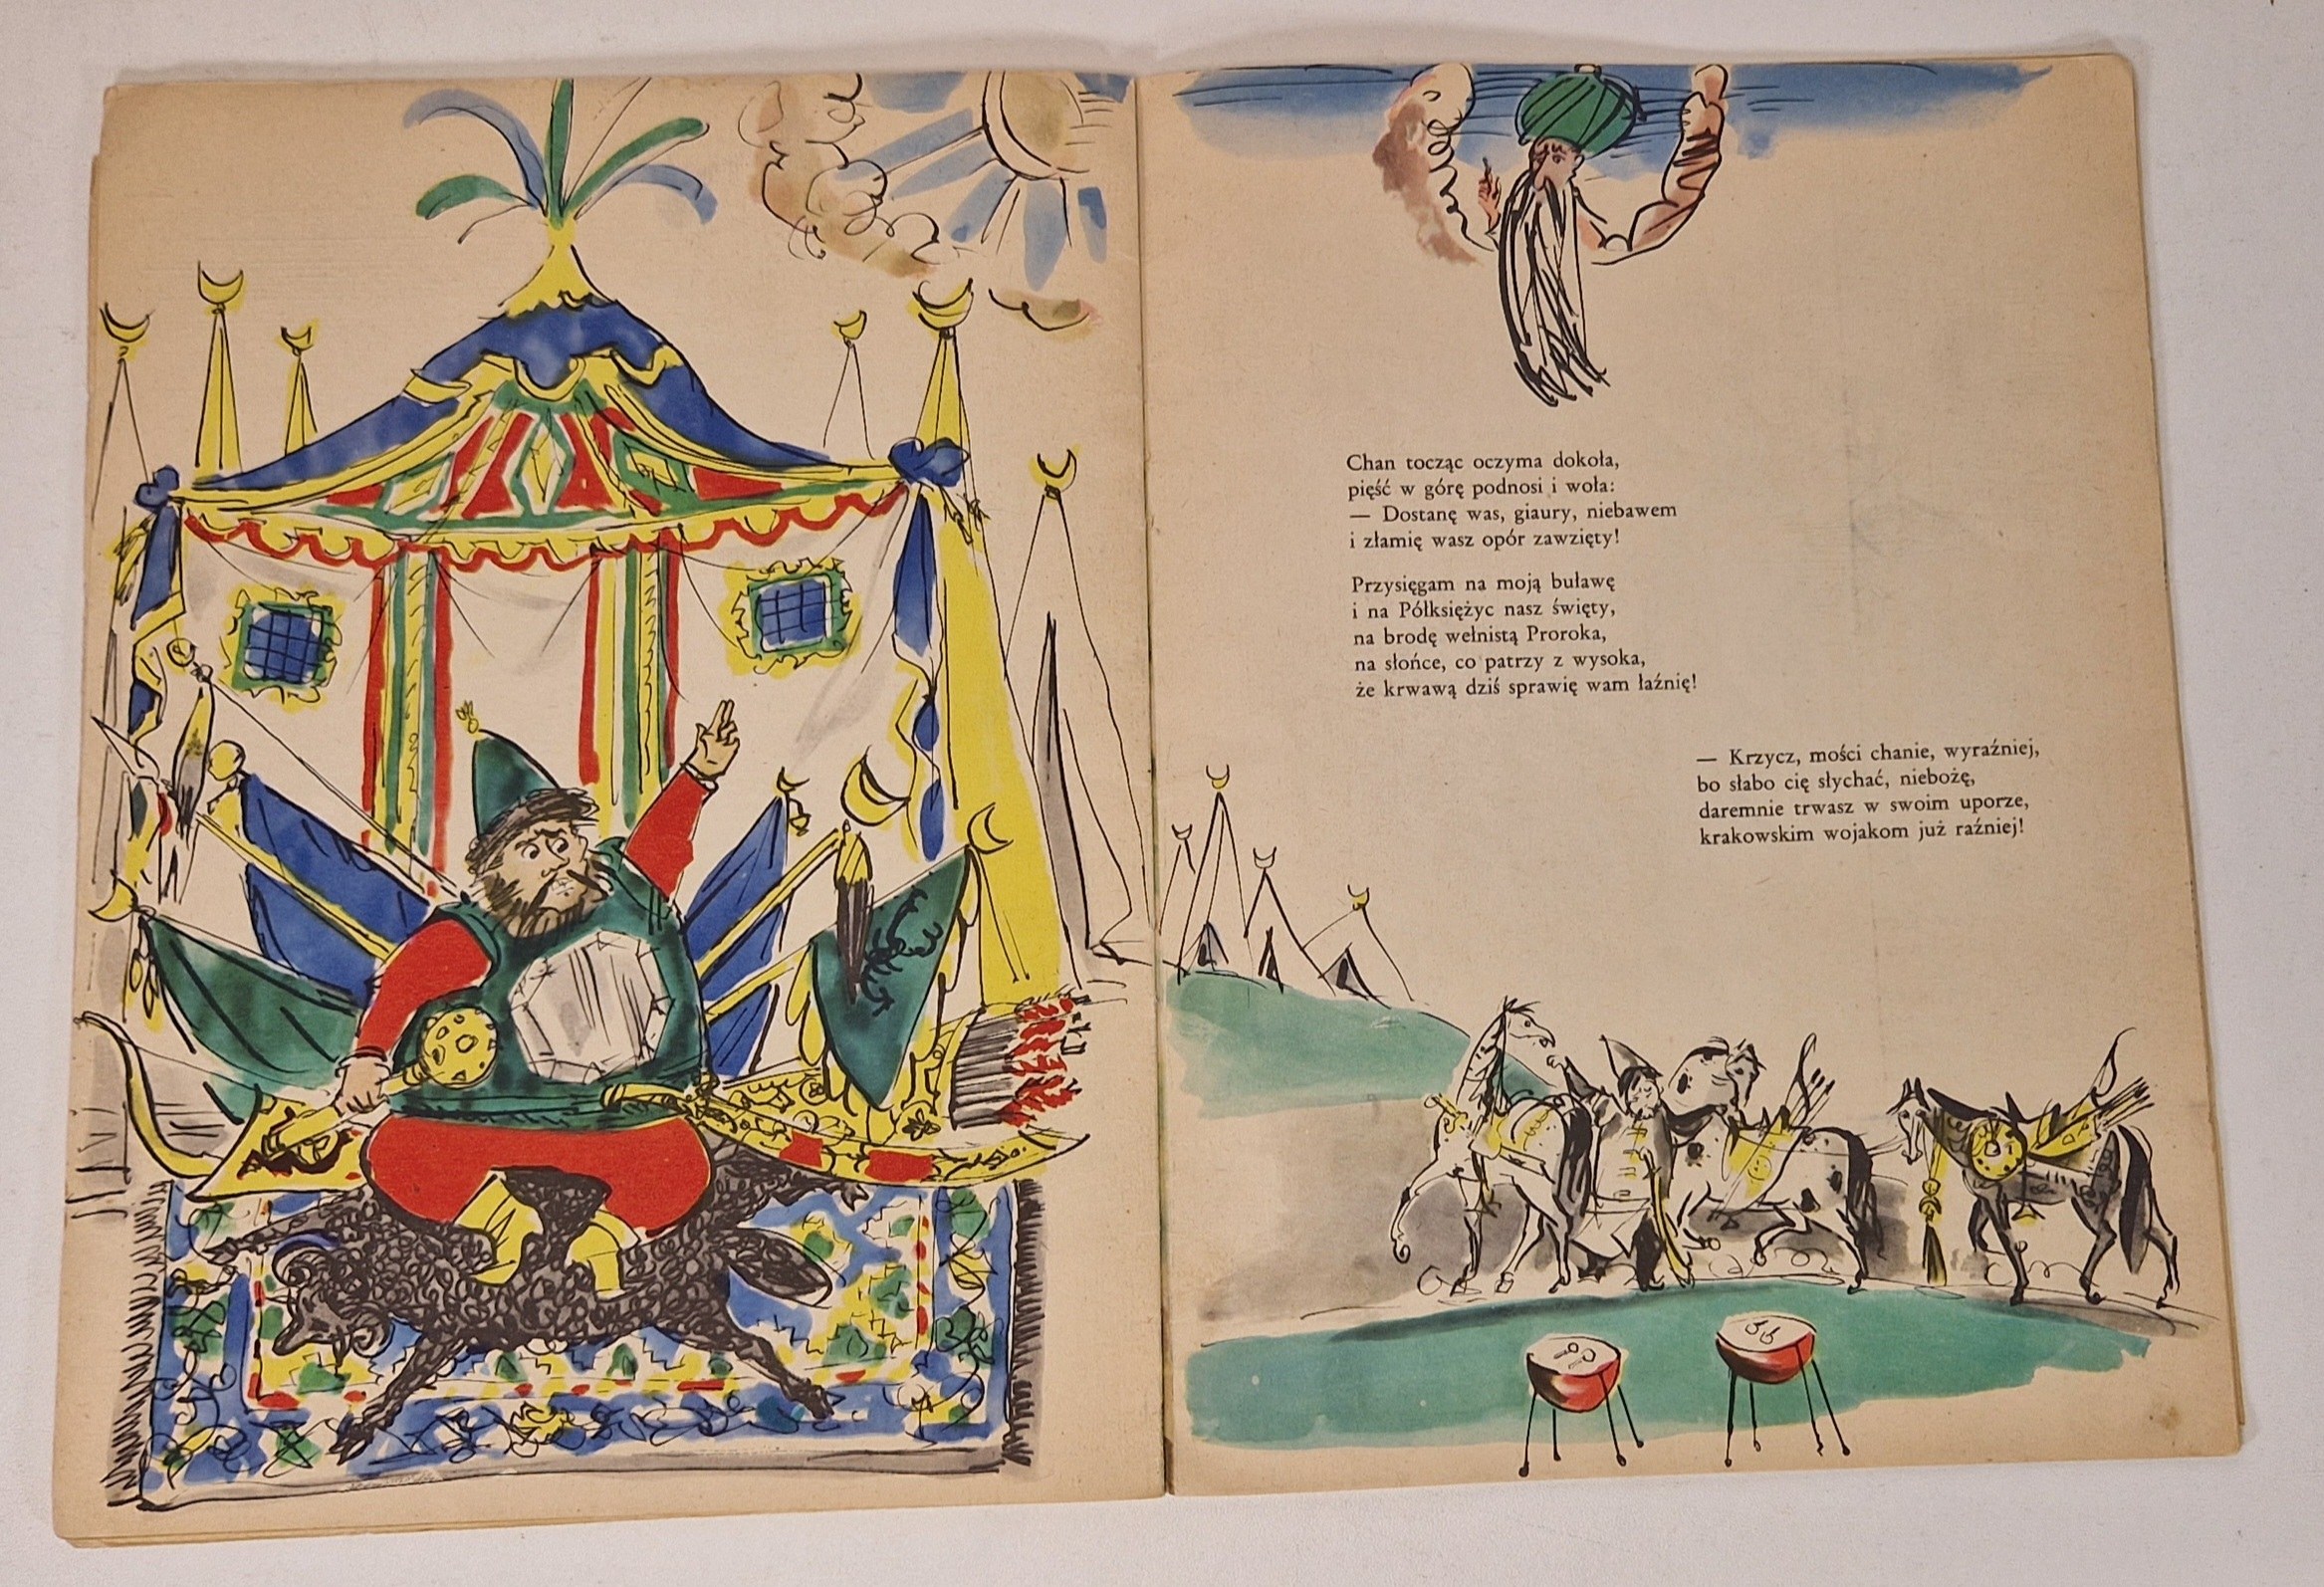 Chan tocząc oczyma dokoła,
pięść w górę podnosi i woła:
— Dostanę was, giaury, niebawem
i złamię wasz opór zawzięty!
Przysięgam na moją buławę
i na Półksiężyc nasz święty,
na brodę wełnistą Proroka,
na słońce, co patrzy z wysoka,
że krwawą dziś sprawię wam łaźnię!
— Krzycz, mości chanie, wyraźniej,
bo słabo cię słychać, niebożę,
daremnie trwasz w swoim uporze,
krakowskim wojakom już raźniej!